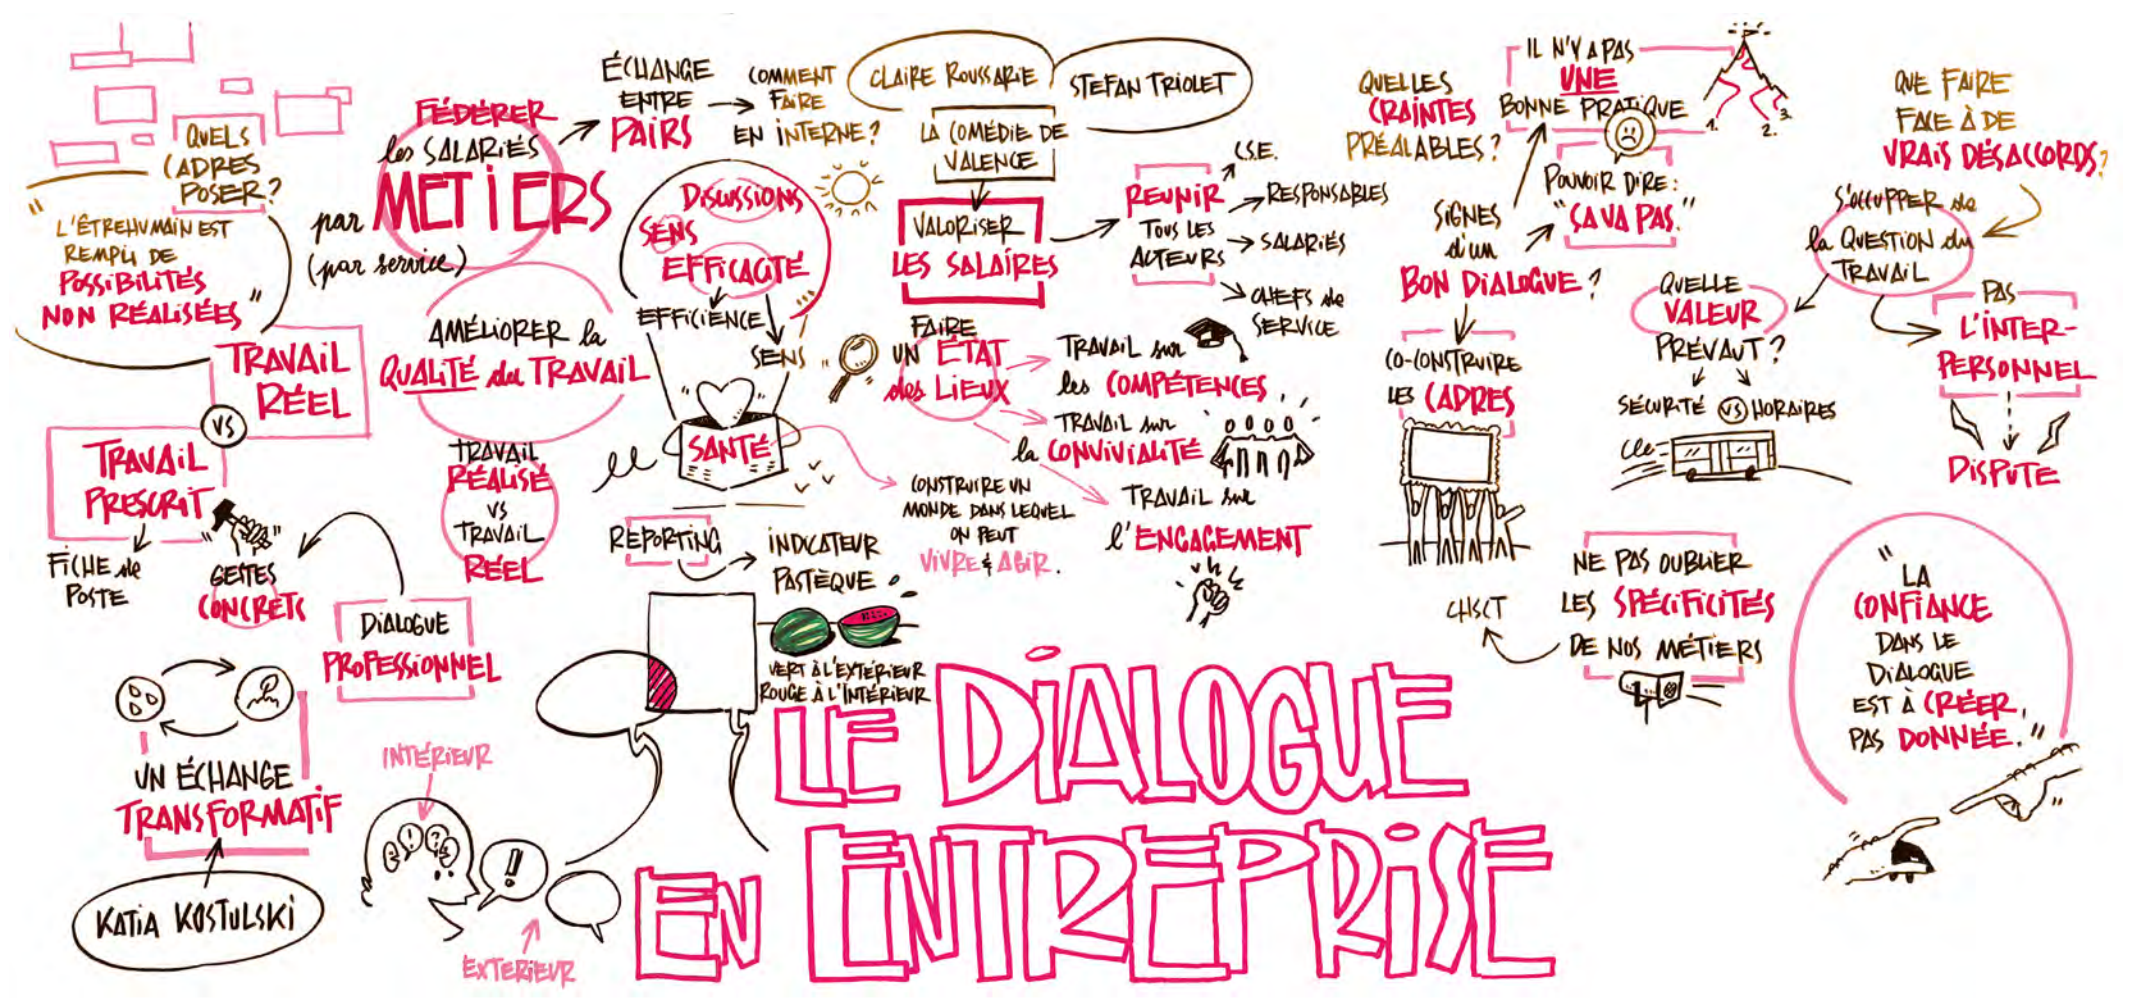 QUELS
CADRES
POSER?
"L'ÊTRE HUMAIN EST
REMPLI DE
POSSIBILITÉS
NON RÉALISÉES"
TRAVAIL
RÉEL
VS
TRAVAIL
PRESCRIT
FICHE de
POSTE
GESTES
CONCRETS
DIALOGUE
PROFESSIONNEL
UN ÉCHANGE
TRANSFORMATIF
KATIA KOSTULSKI
FÉDÉRER
les SALARIÉS
par MÉTIERS
(par service)
ÉCHANGE
ENTRE
PAIRS
COMMENT
FAIRE
EN INTERNE?
AMÉLIORER la
QUALITÉ du TRAVAIL
TRAVAIL
RÉALISÉ
VS
TRAVAIL
RÉEL
INTÉRIEUR
! ?
!
EXTERIEUR
DiSCUSSIONS
SENS
EFFICACITÉ
EFFICIENCE
SENS
SANTÉ
CONSTRUIRE UN
MONDE DANS LEQUEL
ON PEUT
VIVRE & AGIR.
REPORTING
INDICATEUR
PASTÈQUE
VERT À L'EXTÉRIEUR
ROUGE À L'INTÉRIEUR
CLAIRE ROUSSARIE
STEFAN TRIOLET
LA COMÉDIE DE
VALENCE
VALORISER
LES SALAIRES
REUNIR
TOUS LES
ACTEURS
C.S.E.
RESPONSABLES
SALARIÉS
CHEFS de
SERVICE
FAIRE
UN ÉTAT
des LIEUX
TRAVAIL sur
les COMPÉTENCES
TRAVAIL sur
la CONVIVIALITÉ
TRAVAIL sur
l'ENGAGEMENT
LE DIALOGUE
EN ENTREPRISE
QUELLES
CRAINTES
PRÉALABLES?
IL N'Y A PAS
UNE
BONNE PRATIQUE
1. 2. 3.
POUVOIR DIRE:
"ÇA VA PAS."
SIGNES
d'un
BON DIALOGUE?
CO-CONSTRUIRE
LES CADRES
QUE FAIRE
FACE À DE
VRAIS DÉSACCORDS?
S'OCCUPPER de
la QUESTION du
TRAVAIL
QUELLE
VALEUR
PRÉVAUT?
SÉCURITÉ VS HORAIRES
PAS
L'INTER-
PERSONNEL
DISPUTE
NE PAS OUBLIER
LES SPÉCIFICITÉS
DE NOS MÉTIERS
CHSCT
"LA
CONFIANCE
DANS LE
DIALOGUE
EST À CRÉER,
PAS DONNÉE."